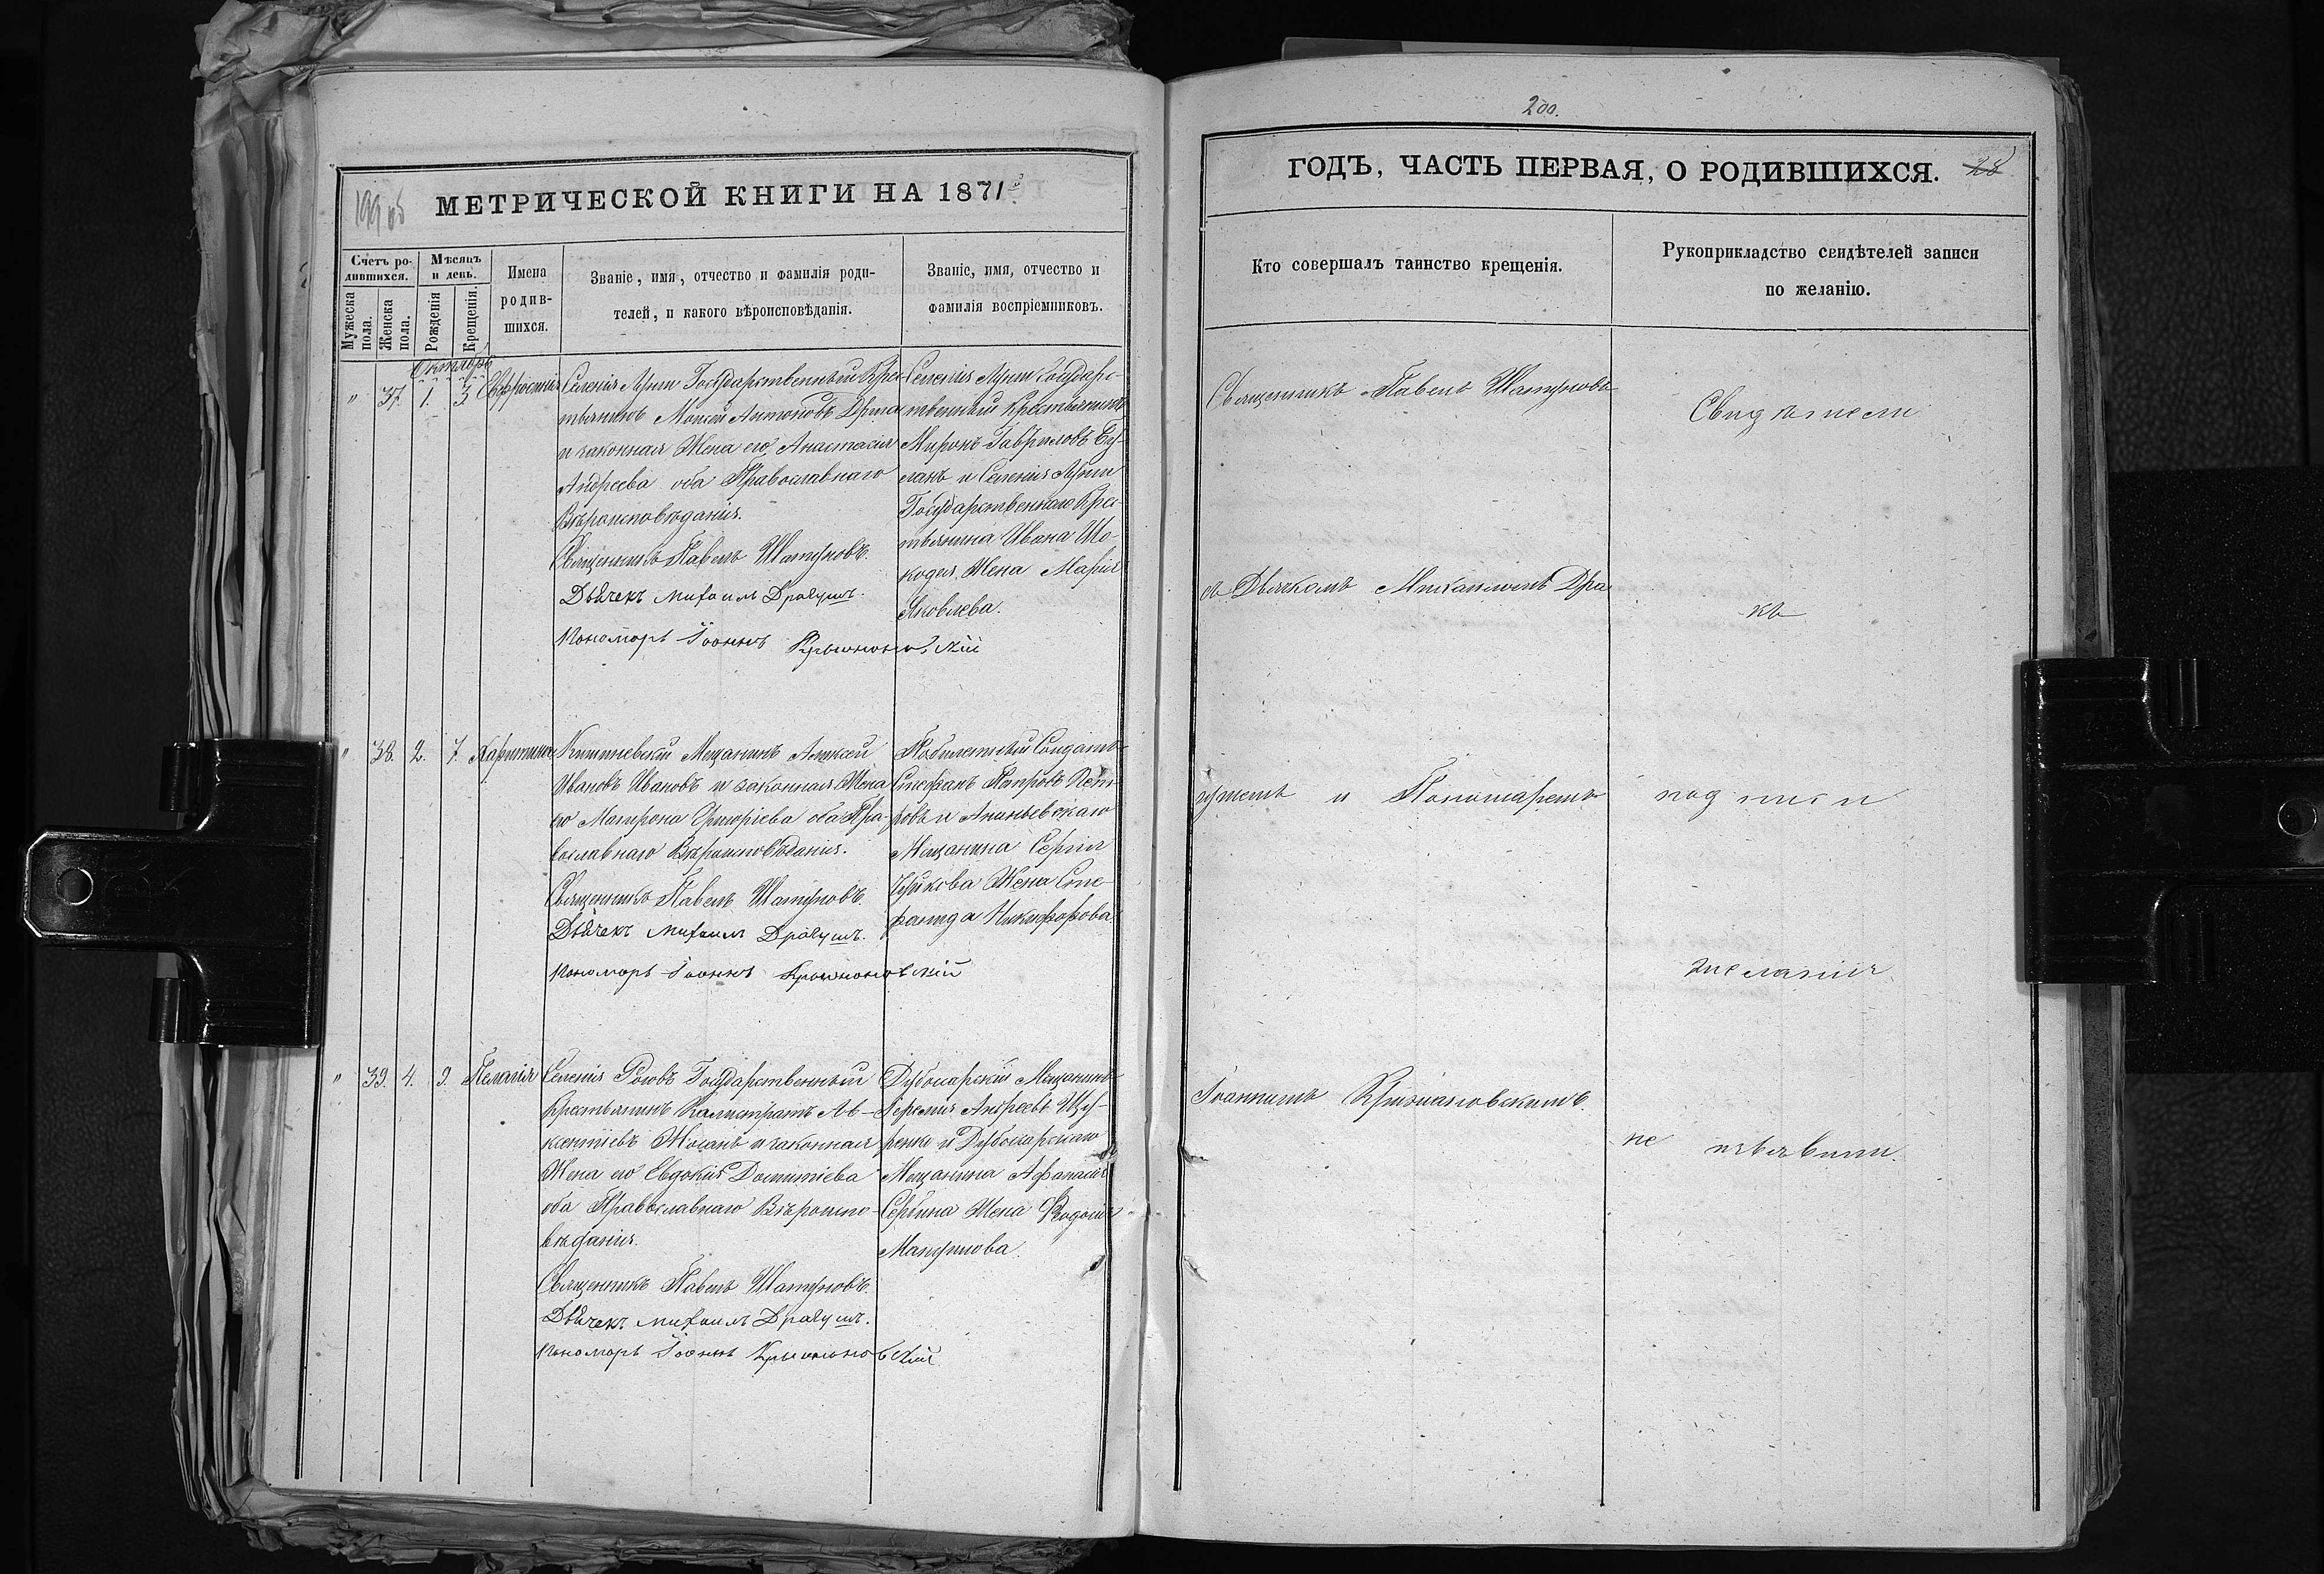 199 об
МЕТРИЧЕСКОЙ КНИГИ НА 1871й
Счетъ ро-
дившихся.
Мужеска пола.
Женска пола.
Мѣсяцъ
и день.
Рожденія
Крещенія.
Имена
родив-
шихся.
Званіе, имя, отчество и фамилія роди-
телей, и какого вѣроисповѣданія.
Званіе, имя, отчество и
фамилія воспріемниковъ.
Октябрь
" 37. 1. 3. Евфросинія
Селенія Лунги Государственный Крес-
тьянинъ Моисей Антоновъ
и законная Жена его Анастасія
Андреева оба Православнаго
Вѣроисповѣданія.
Священникъ Павелъ Шатуновъ.
Дьячекъ Михаилъ Драгушъ.
Пономарь Іоаннъ Крыжановскій
Селенія Лунги Государс-
твенный Крестьянинъ
Миронъ Гавриловъ
и Селенія Лунги
Государственнаго Крес-
тьянина Ивана
Жена Марія
Яковлева.
" 38. 2. 7. Харитина
Кишиневскій Мещанинъ Алексей
Ивановъ Ивановъ и законная Жена
его Матрона Григоріева оба Пра-
вославнаго Вѣроисповѣданія.
Священникъ Павелъ Шатуновъ
Дьячекъ Михаилъ Драгушъ.
Пономарь Іоаннъ Крыжановскій
Побилетный Солдатъ
Стефанъ Петровъ Пет-
ровъ и Ананьевскаго
Мещанина Сергія
Жена Сте-
фанида Никифорова.
" 39. 4. 9. Пелагія
Селенія Роговъ Государственный
Крестьянинъ Калистратъ Ав-
ксентіевъ и законная
Жена его Евдокія Дометіева
оба Православнаго Вѣроиспо-
вѣданія.
Священникъ Павелъ Шатуновъ.
Дьячекъ Михаилъ Драгушъ.
Пономарь Іоаннъ Крыжановскій
Дубосарскій Мещанинъ
Іеремія Андреевъ
и Дубосарскаго
Мещанина Афанасія
Сербина Жена
200.
ГОДЪ, ЧАСТЬ ПЕРВАЯ, О РОДИВШИХСЯ. 28
Кто совершалъ таинство крещенія.
Рукоприкладство свидѣтелей записи
по желанію.
Священникъ Павелъ Шатуновъ
съ Дьячкомъ Михаиломъ Дра
гушемъ и Пономаремъ
Іоанномъ Крыжановскимъ.
Свидѣтели
къ
подписи
желанія
не изъявили.